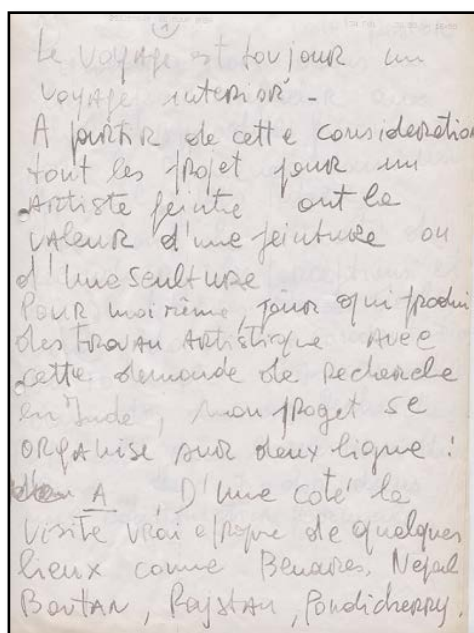 Le voyage est toujour un
voyage interior -
A partir de cette consideration
tout les projet pour un
Artiste peintre ont la
valeur d'une peinture ou
d'une sculture
Pour moi même, pour qui produi
des travau Artistique avec
cette demande de recherche
en Inde, mon proget se
organise sur deux ligne :
A, D'une coté la
visite vrai e propre de quelques
lieux come Benares, Nepal
Boutan, Rajstan, Pondicherry,